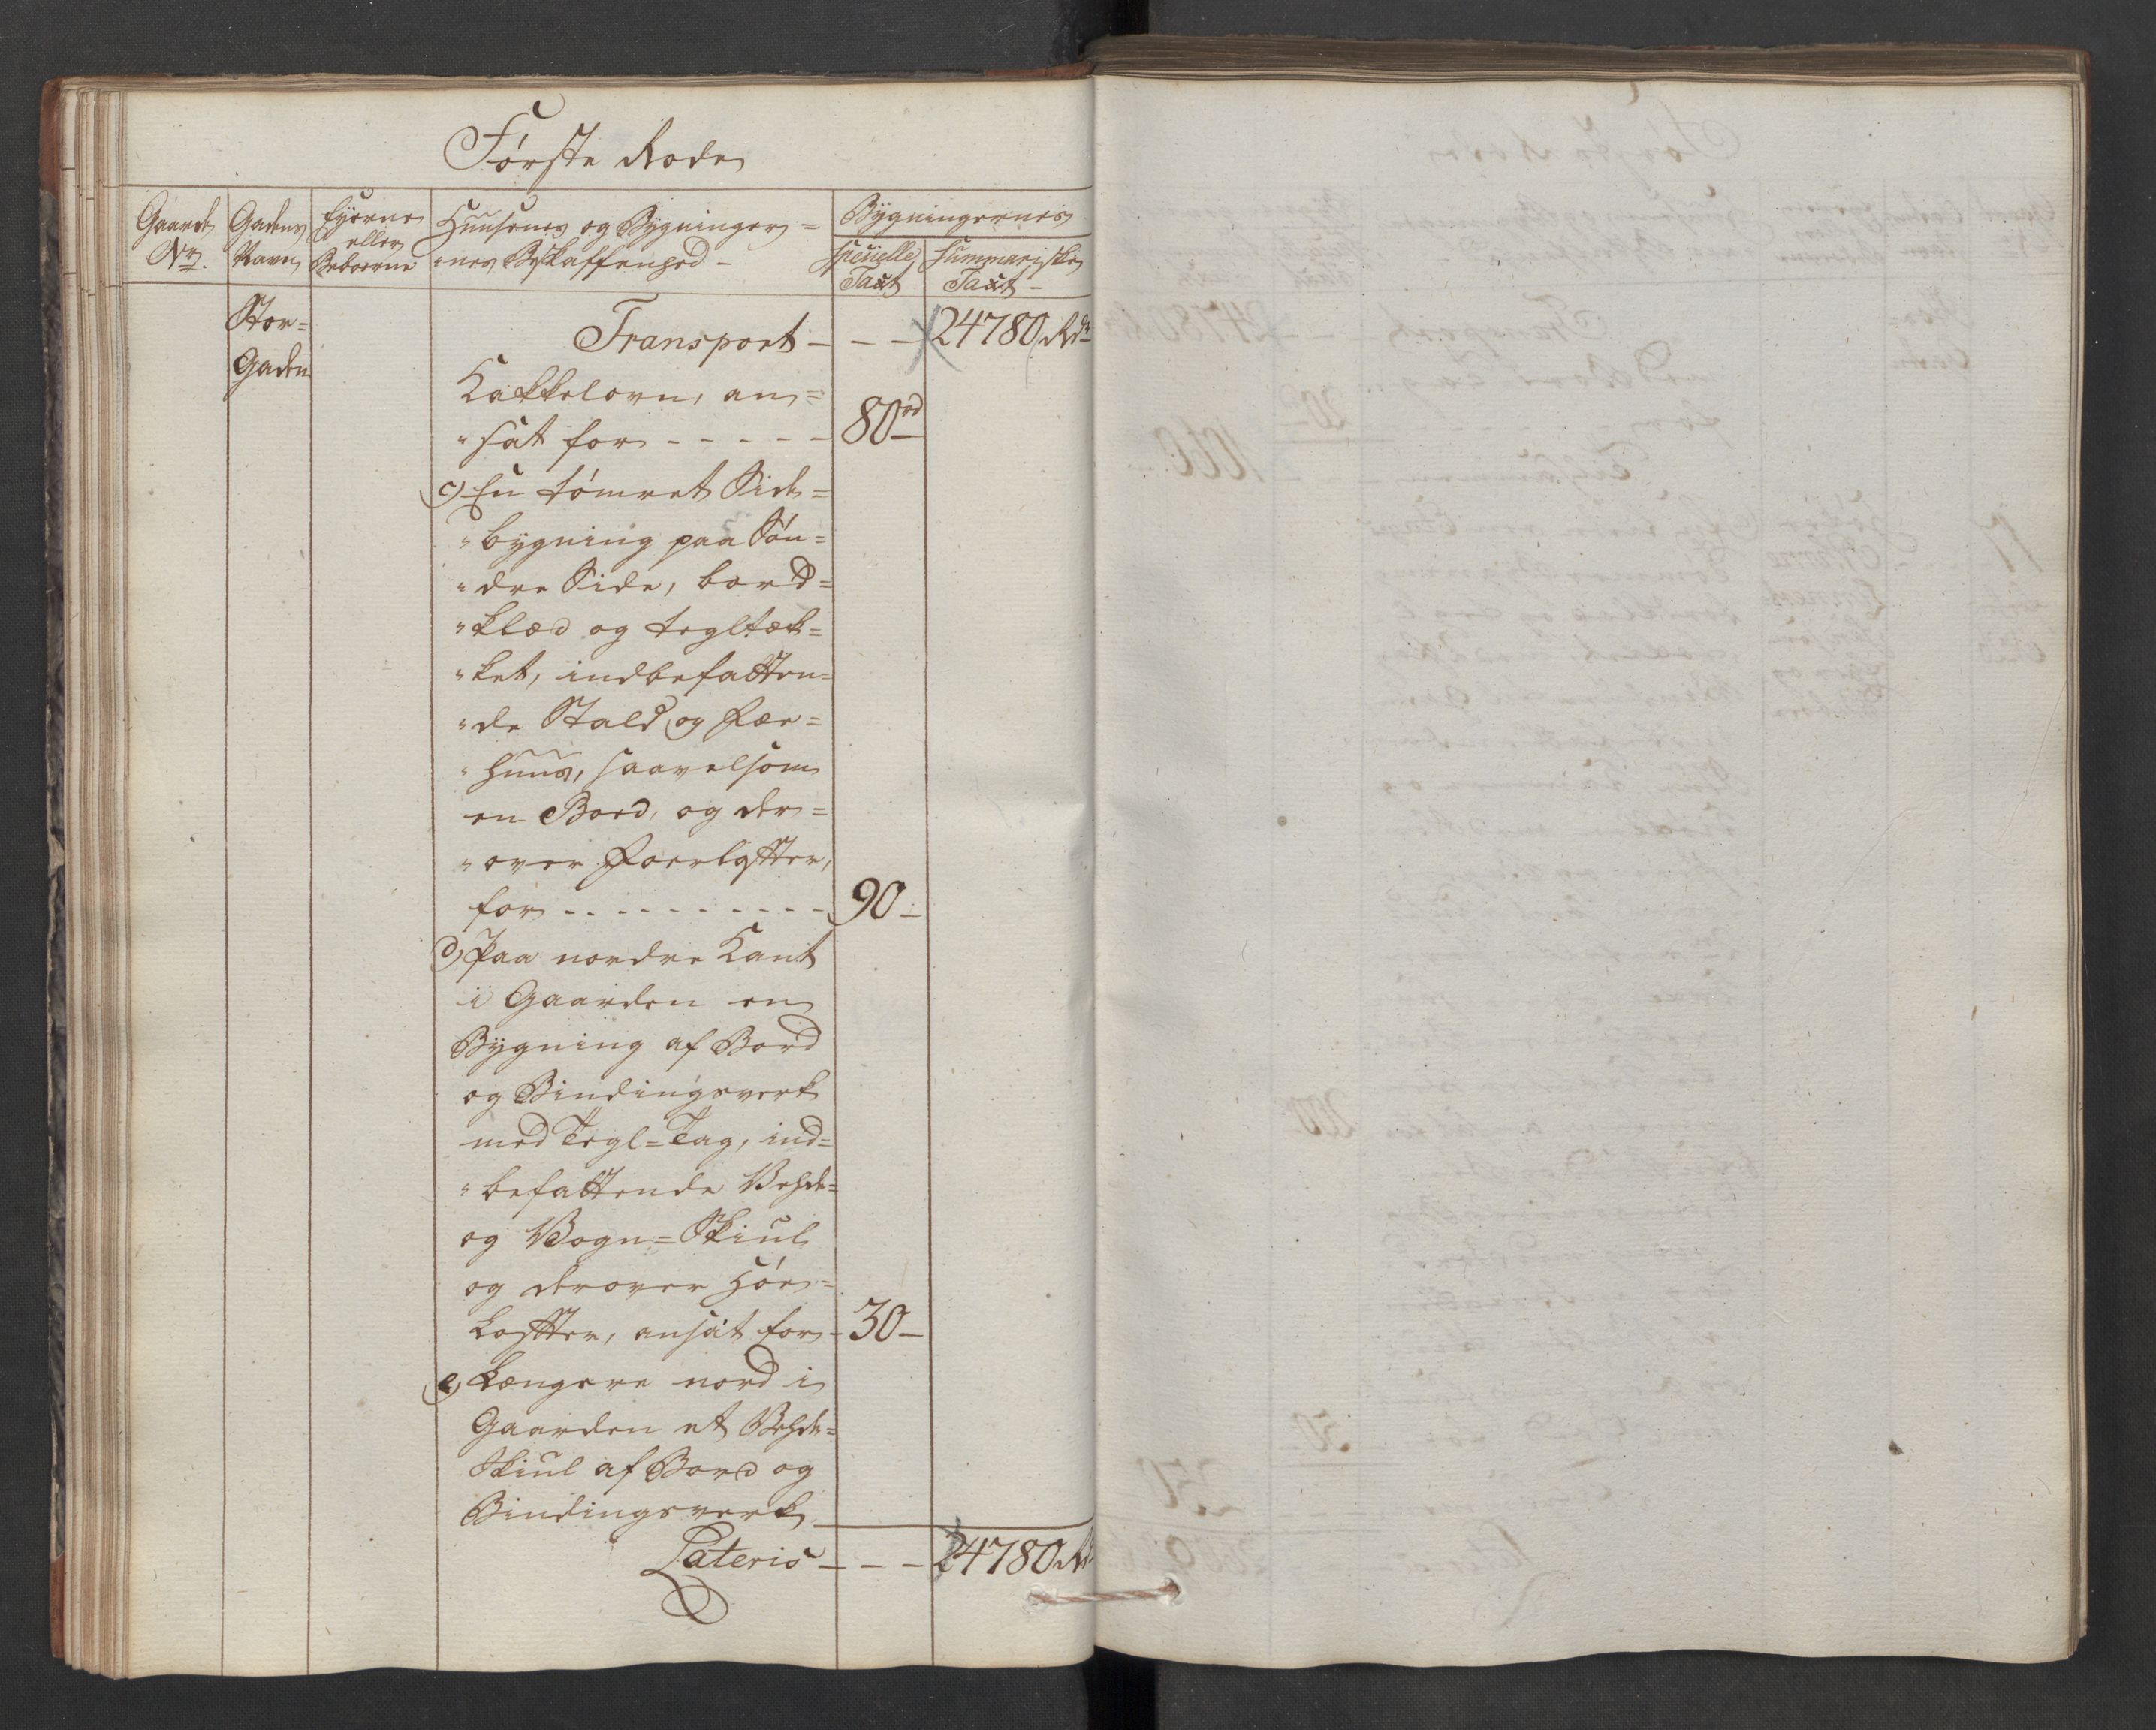 Første Rode
Gaards Nr. | Gadens Navn | Eyerne eller Beboerne | Huusenes og Bygninger= „nes Beskaffenhed – | Bygningernes
Specielle Taxt | Summariske Taxt –
Stor=
Gaden
Transport – – – 24780 Rdr
Kakkelovn, an=
„sat for - - - - - 80 rd
c) En tømret Side=
„bygning paa Søn=
„dre Side, bord=
„klæd og tegltæk=
„ket, indbefatten=
„de Stald og Fæe=
„huus, saavelsom
en Boed, og der=
„over Foerlofter,
for - - - - - - - - - 90 –
d) Paa nordre Kant
i Gaarden en
Bygning af Bord
og Bindingsverk
med Tegl=Tag, ind=
„befattende Vehde=
og Vogn=Skiul
og derover Høe=
Lofter, ansat for - 30 –
e) Længere nord i
Gaarden et Vehde=
Skiul af Bord og
Bindingsverk
Lateris – – – 24780 Rd